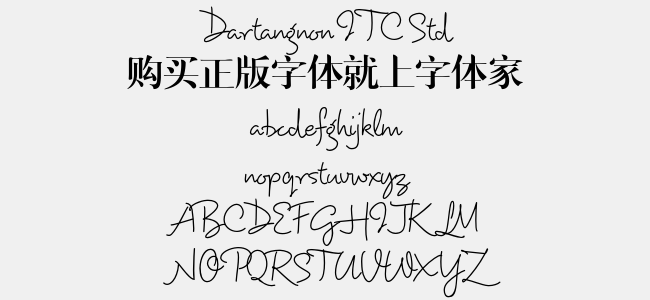 Dartangnon ITC Std
购买正版字体就上字体家
abcdefghijklm
nopqrstuvwxyz
ABCDEFGHIJKLM
NOPQRSTUVWXYZ